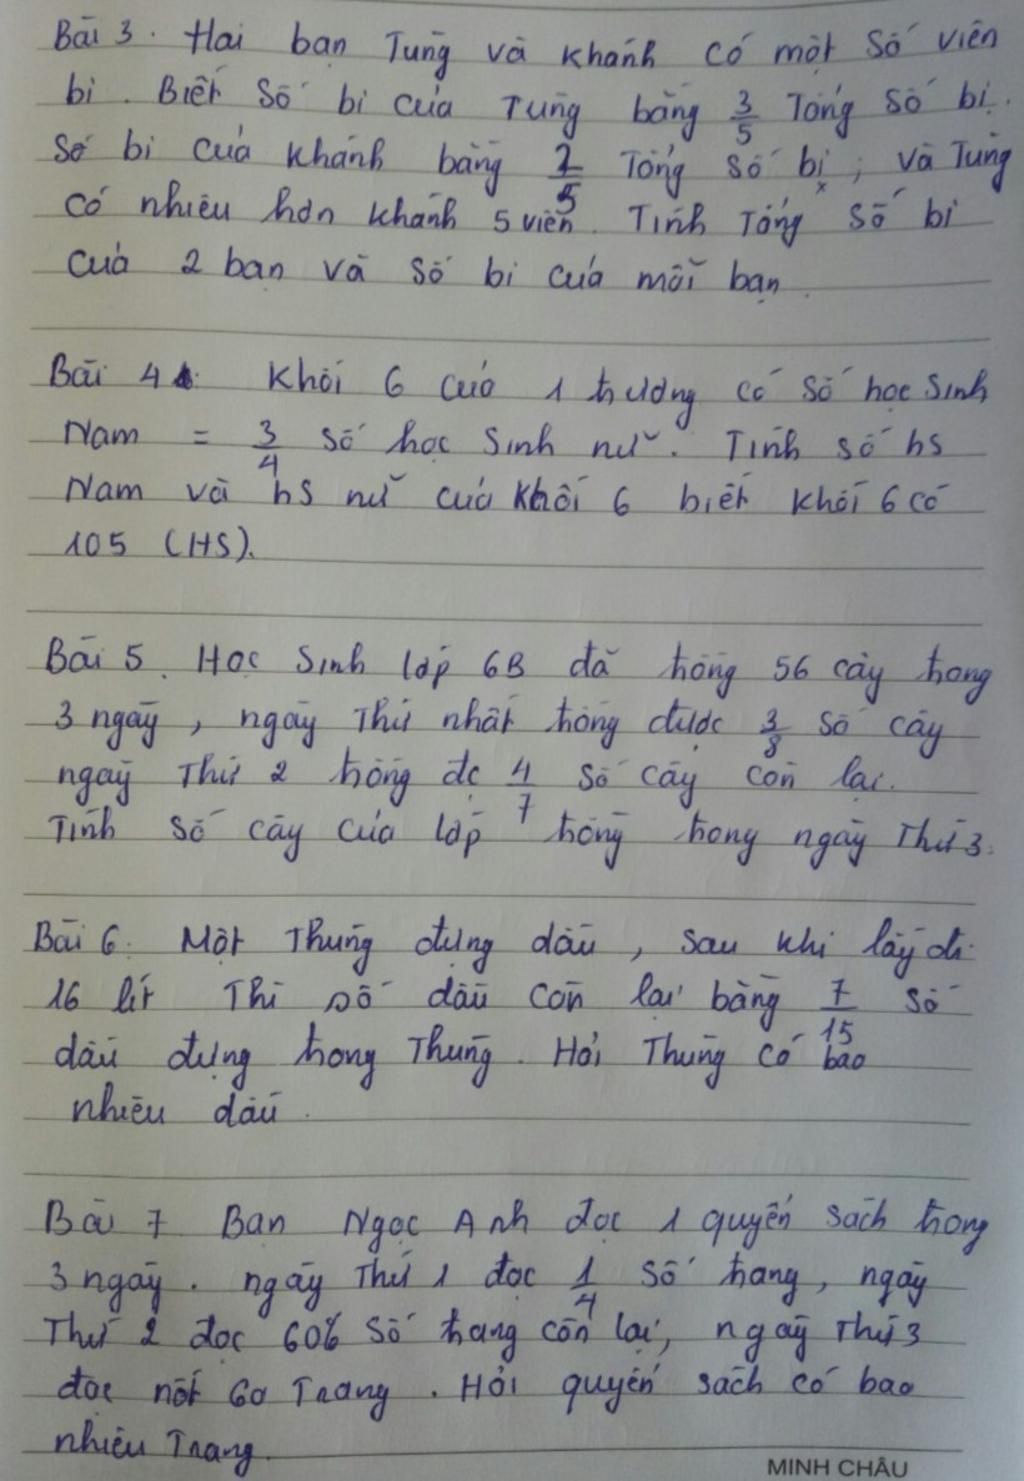 Bài 3. Hai bạn Tùng và Khánh có một số viên
bi. Biết số bi của Tùng bằng 3/5 Tổng số bi.
Số bi của Khánh bằng 2/5 Tổng số bi, và Tùng
có nhiều hơn Khánh 5 viên. Tính Tổng số bi
của 2 bạn và số bi của mỗi bạn.
Bài 4: Khối 6 của 1 trường có số học sinh
Nam = 3/4 số học sinh nữ. Tính số hs
Nam và hs nữ của khối 6 biết khối 6 có
105 (HS).
Bài 5. Học sinh lớp 6B đã trồng 56 cây trong
3 ngày, ngày Thứ nhất trồng được 3/8 số cây
ngày Thứ 2 trồng đc 4/7 số cây còn lại.
Tính số cây của lớp trồng trong ngày Thứ 3.
Bài 6. Một Thùng đựng dầu, sau khi lấy đi
16 lít Thì số dầu còn lại bằng 7/15 số
dầu đựng trong Thùng. Hỏi Thùng có bao
nhiêu dầu.
Bài 7 Bạn Ngọc Anh đọc 1 quyển sách trong
3 ngày. ngày Thứ 1 đọc 1/4 số trang, ngày
Thứ 2 đọc 60% số trang còn lại, ngày Thứ 3
đọc nốt 60 Trang. Hỏi quyển sách có bao
nhiêu Trang.
MINH CHÂU